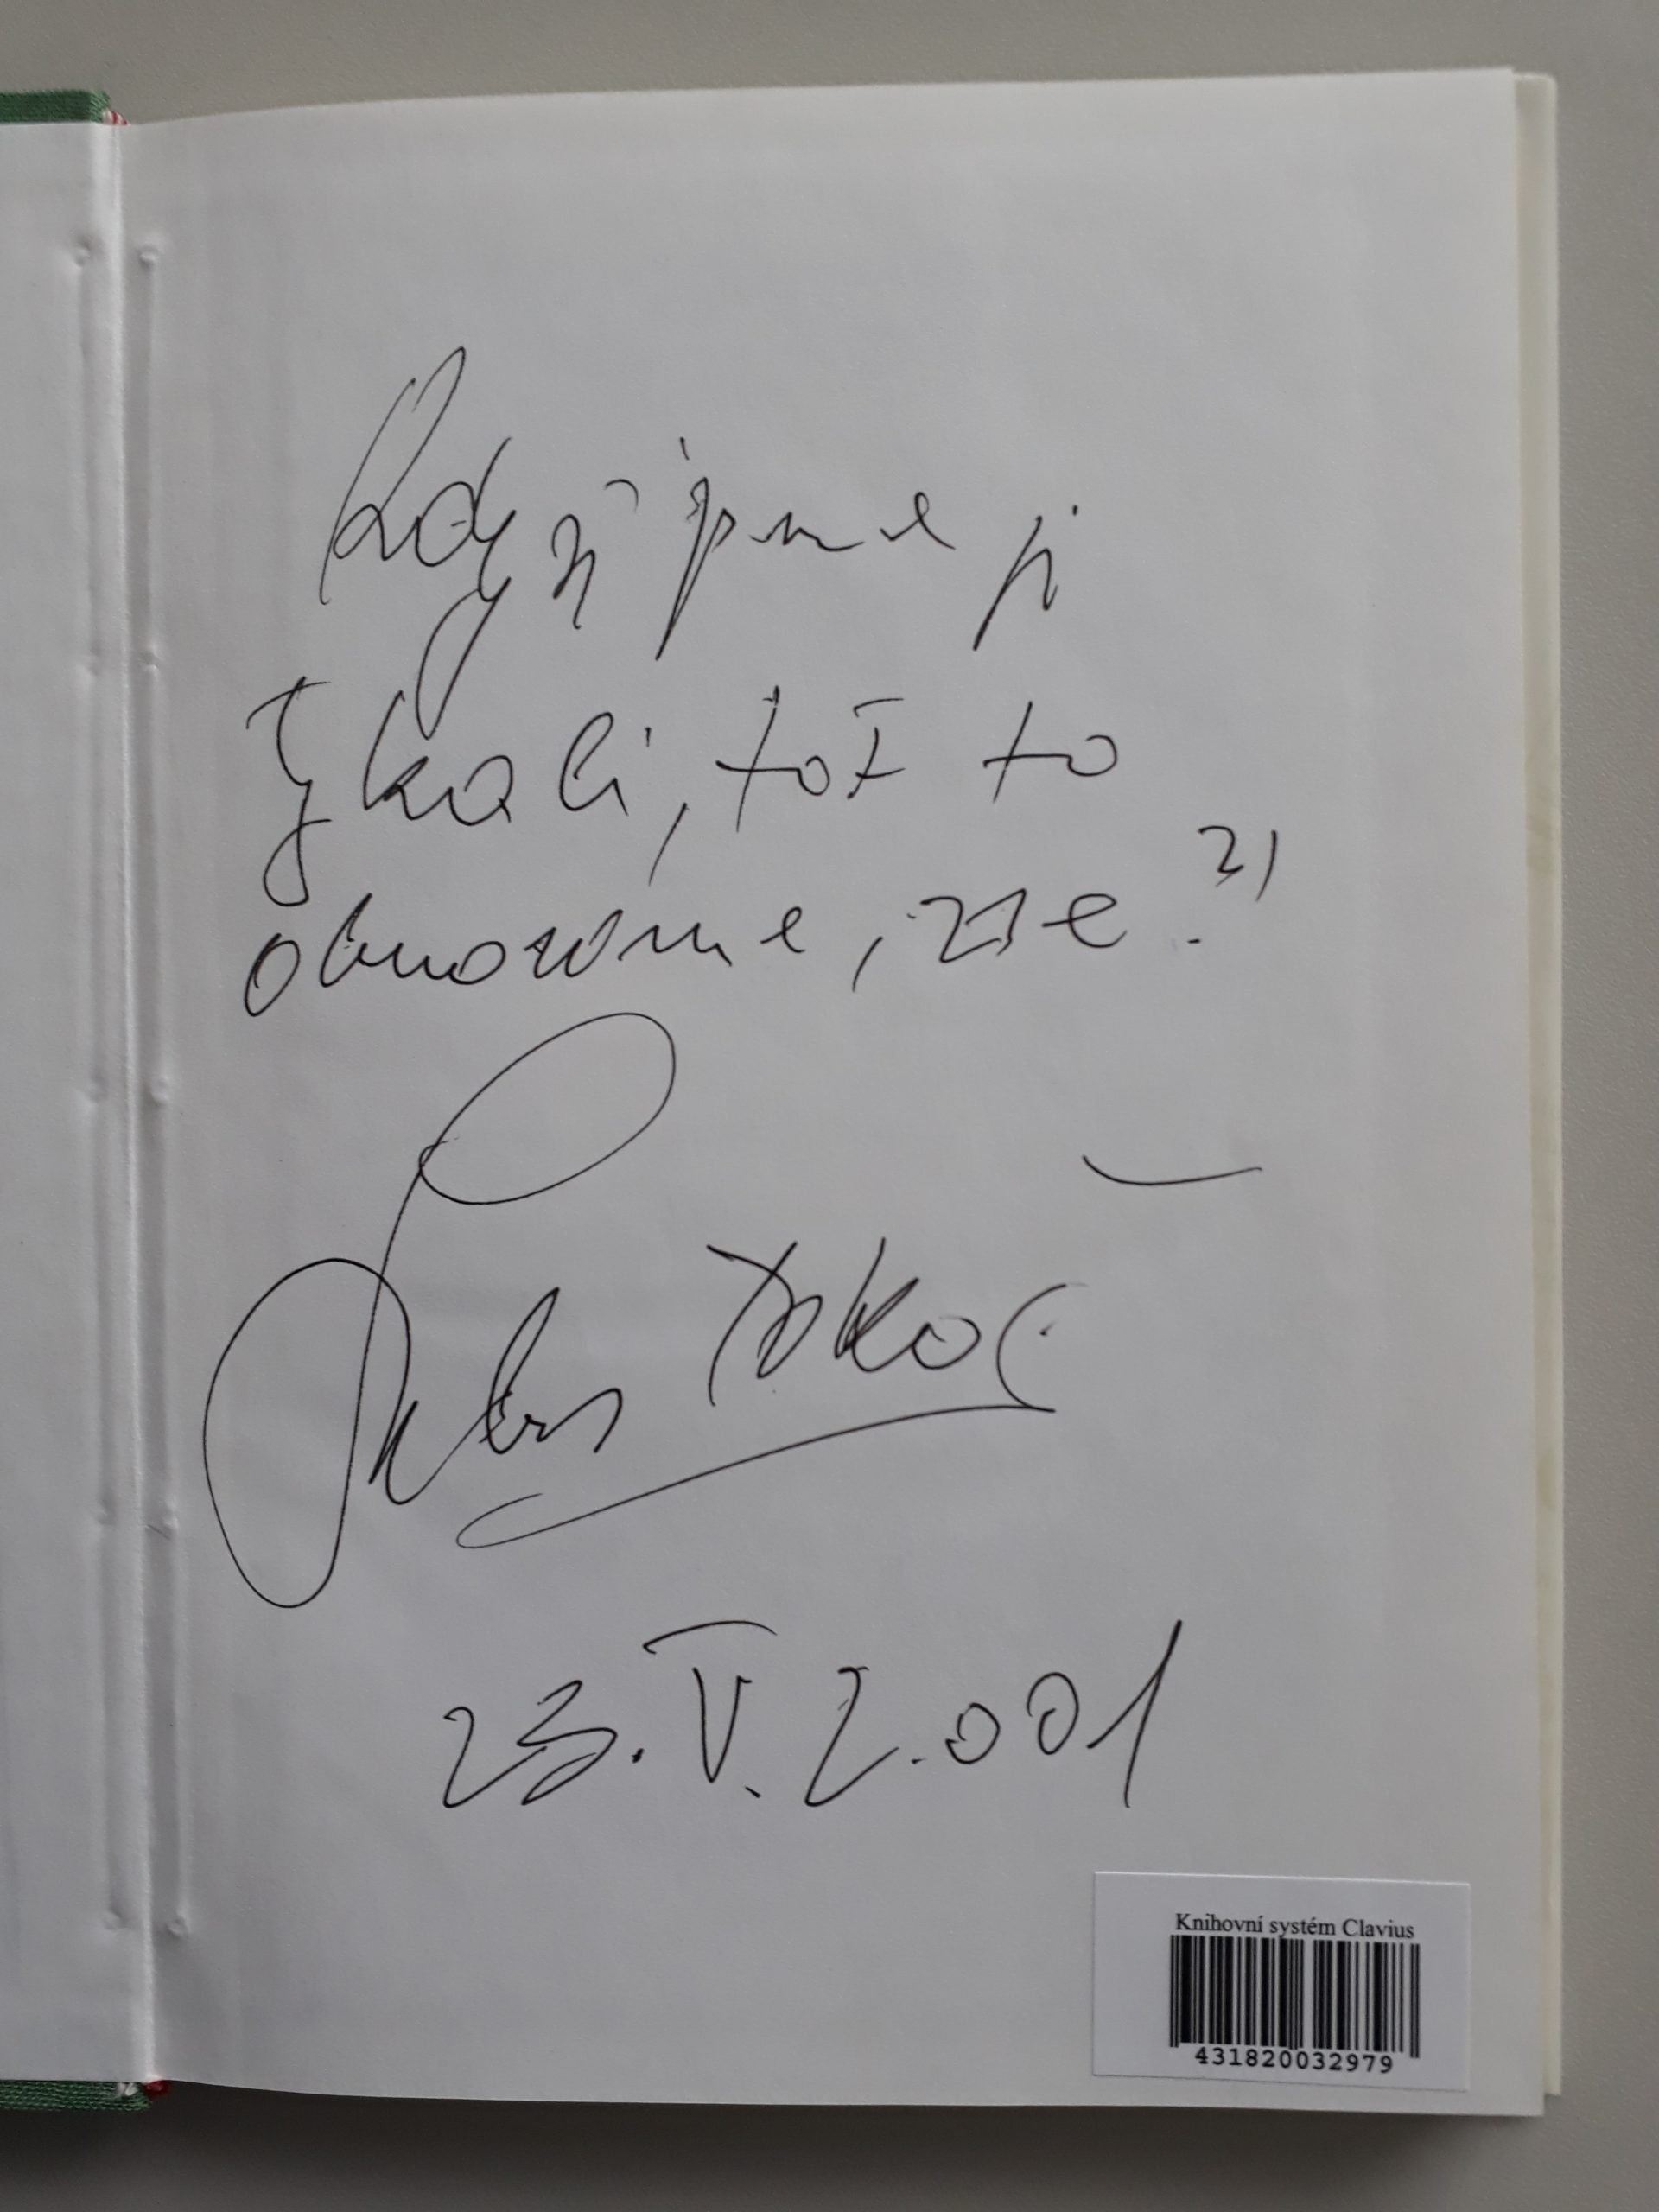 Když jsme
tykali, tož to
obnovme,
Lubor Tokoš
23. V. 2.001
Knihovní systém Clavius
431820032979